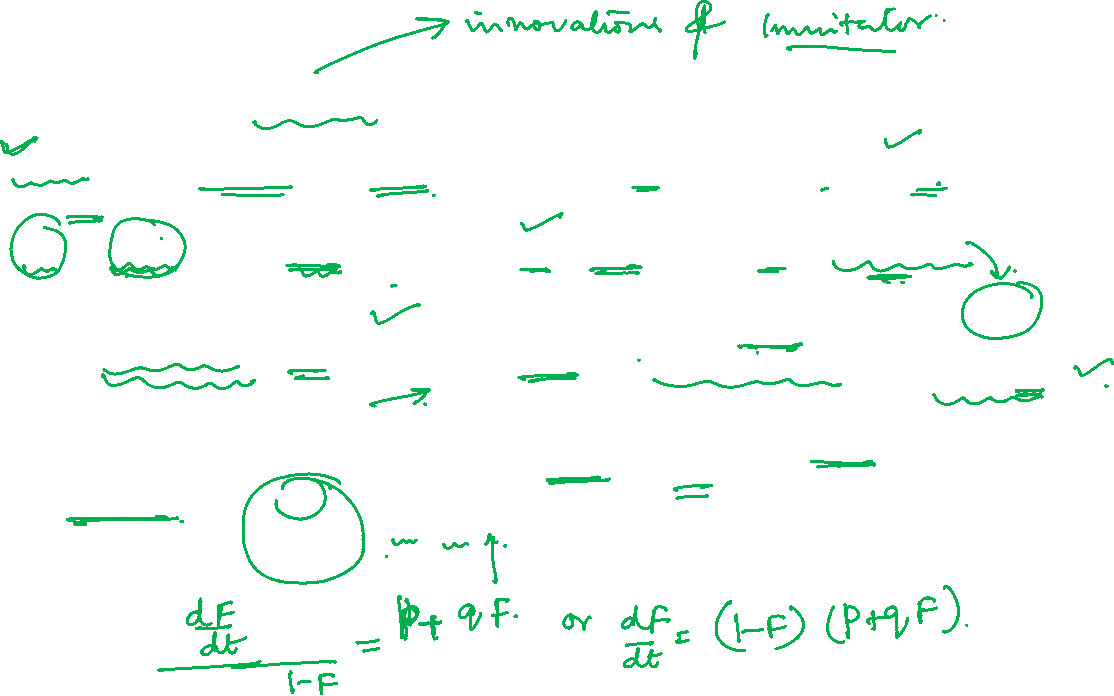 innovations & immitator.
dF/dt / 1-F = p + qF. or dF/dt = (1-F) (p+qF).